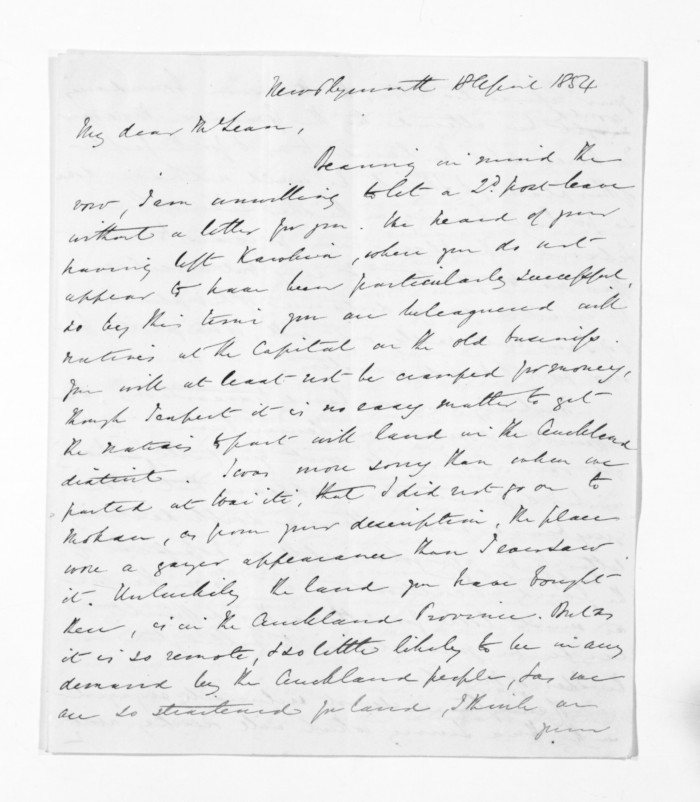 New Plymouth 18 April 1854
My dear McLean,
Bearing in mind the
vow, I am unwilling to let a 2d. post leave
without a letter for you. We heard of your
having left Kawhia, where you do not
appear to have been particularly successful,
so by this time you are beleaguered with
natives at the Capital on the old business.
You will at least not be cramped for money,
though I expect it is no easy matter to get
the natives to part with land in the Auckland
district. I was more sorry than when we
parted at Wai iti, that I did not go on to
Mokau, as from your description, the place
wore a gayer appearance than I ever saw
it. Unluckily the land you have bought
there, is in the Auckland Province. But as
it is so remote, & so little likely to be in any
demand by the Auckland people, & as we
are so straitened for land, I think on
your